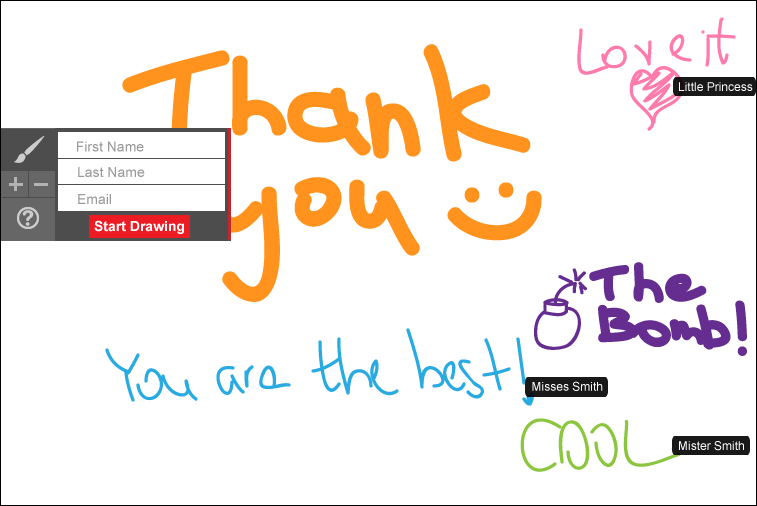 Love it
Little Princess
Thank
you
First Name
Last Name
Email
Start Drawing
The
Bomb!
You are the best!
Misses Smith
COOL
Mister Smith